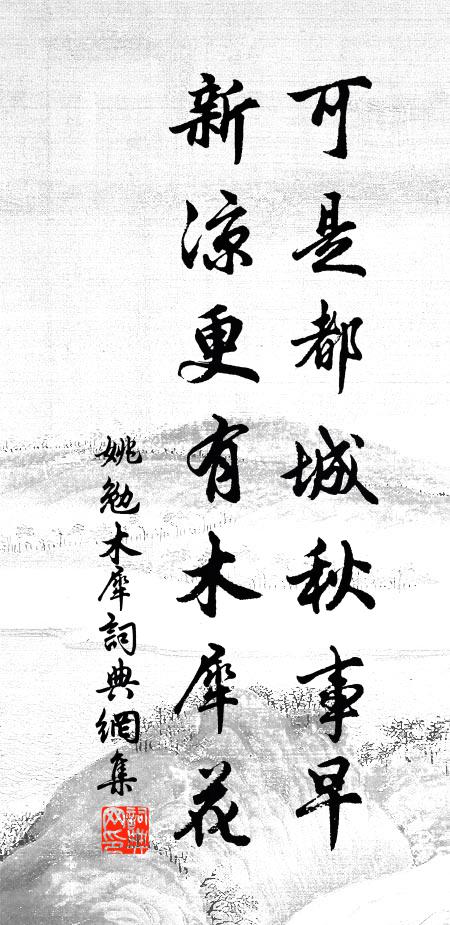 可是都城秋事早
新凉更有木犀花
姚勉木犀詞典網集